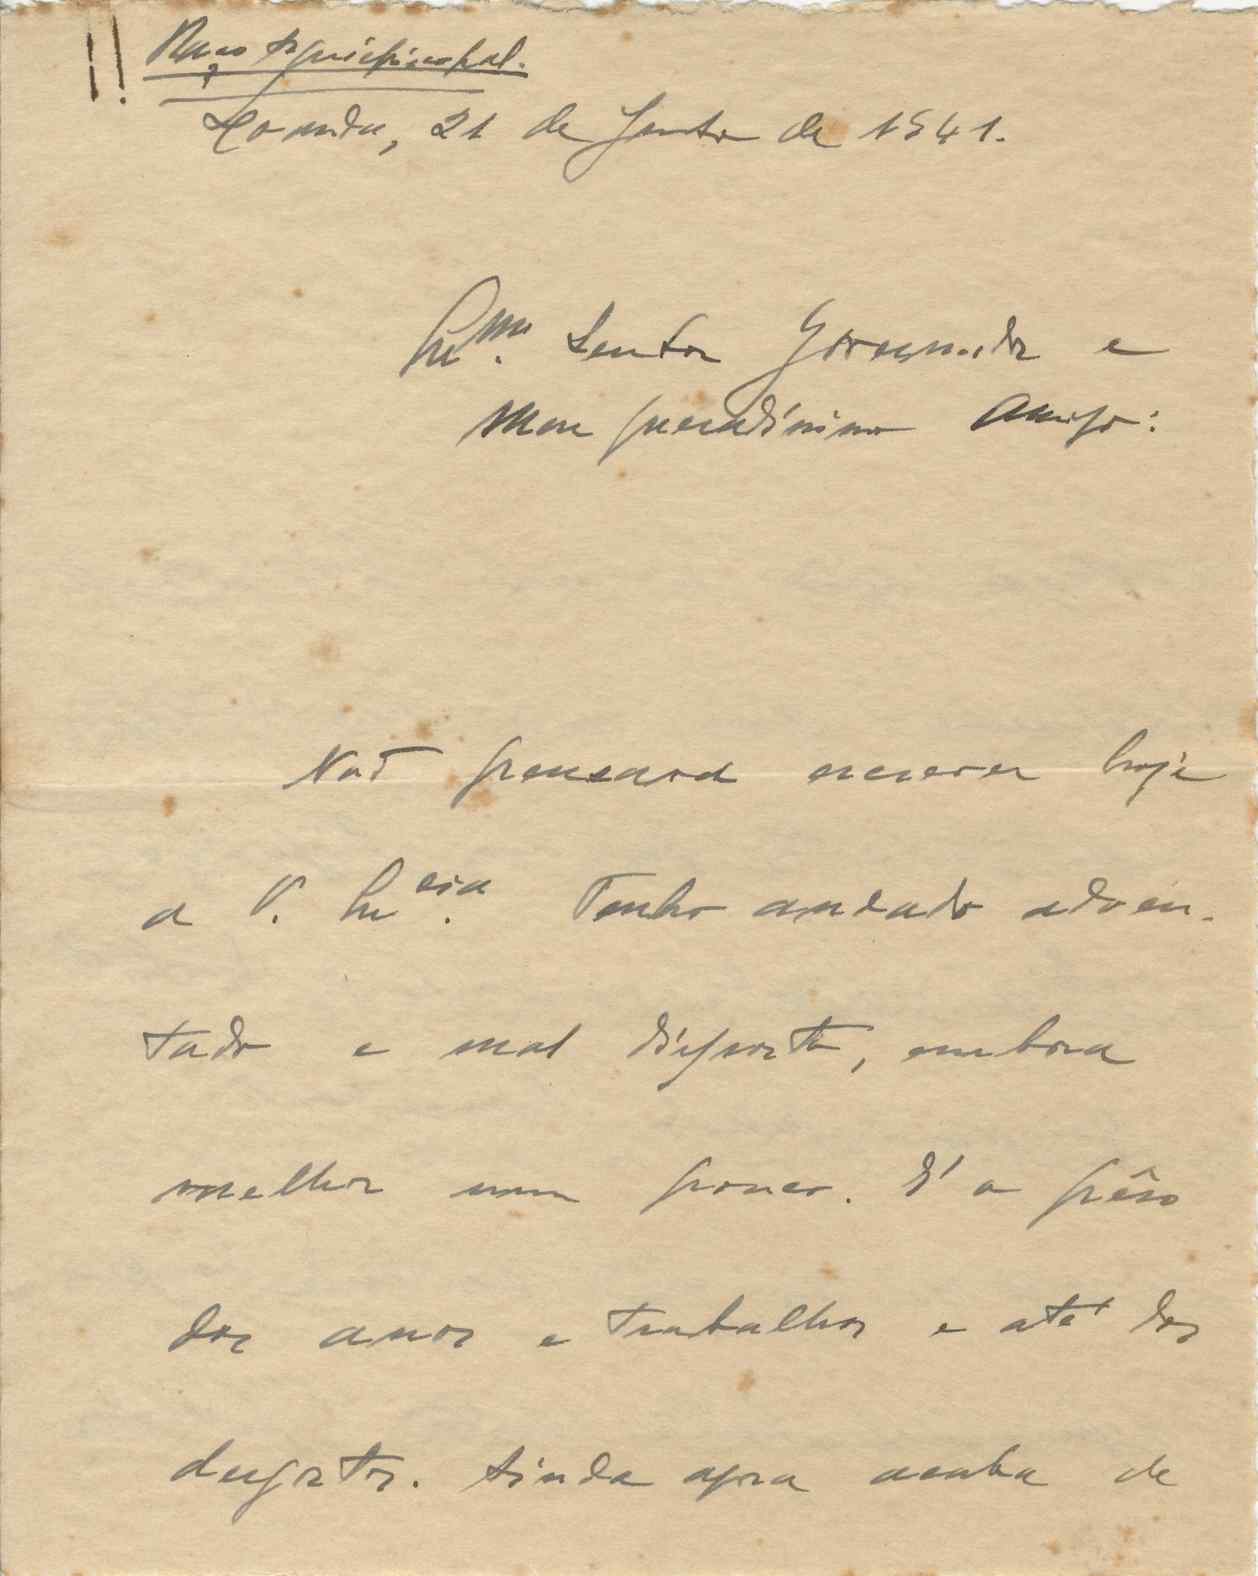 !! Paço Arquiepiscopal.
Loanda, 21 de Junho de 1941.
Ex.mo Senhor Governador e
meu queridíssimo Amigo:
Não pensava escrever hoje
a V. Ex.cia. Tenho andado adoen-
tado e mal disposto, embora
melhor um pouco. É o pêso
dos anos e trabalhos e até dos
desgostos. Ainda agora acaba de